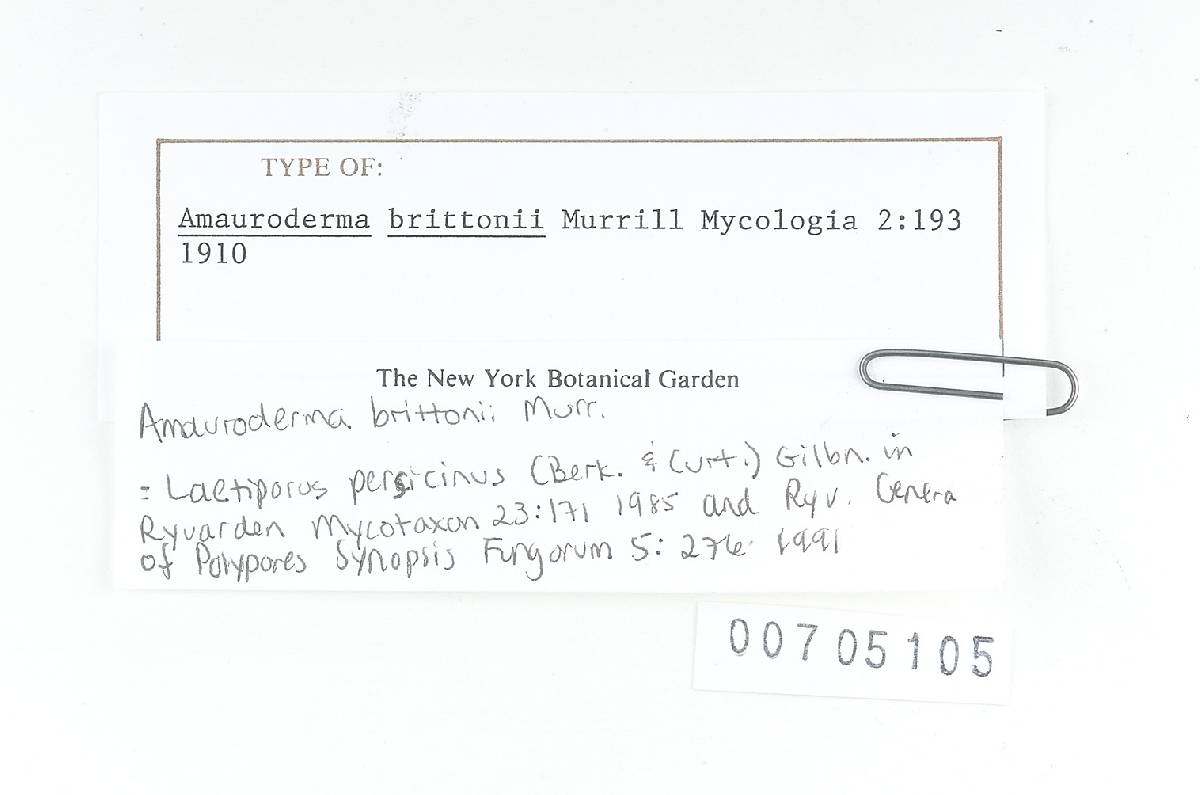 TYPE OF:
Amauroderma brittonii Murrill Mycologia 2:193
1910
The New York Botanical Garden
Amauroderma brittonii Murr.
= Laetiporus persicinus (Berk. & Curt.) Gilbn. in
Ryvarden Mycotaxon 23:171 1985 and Ryv. Genera
of Polypores Synopsis Fungorum 5: 276 1991
00705105